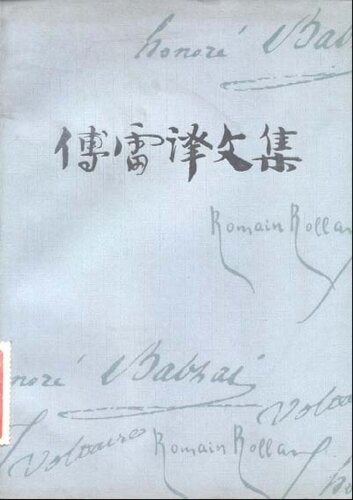 honoré Bal
傅雷译文集
Romain Rollan
onoré Balzac
Voltaire
Voltai
Romain Rollan
ho